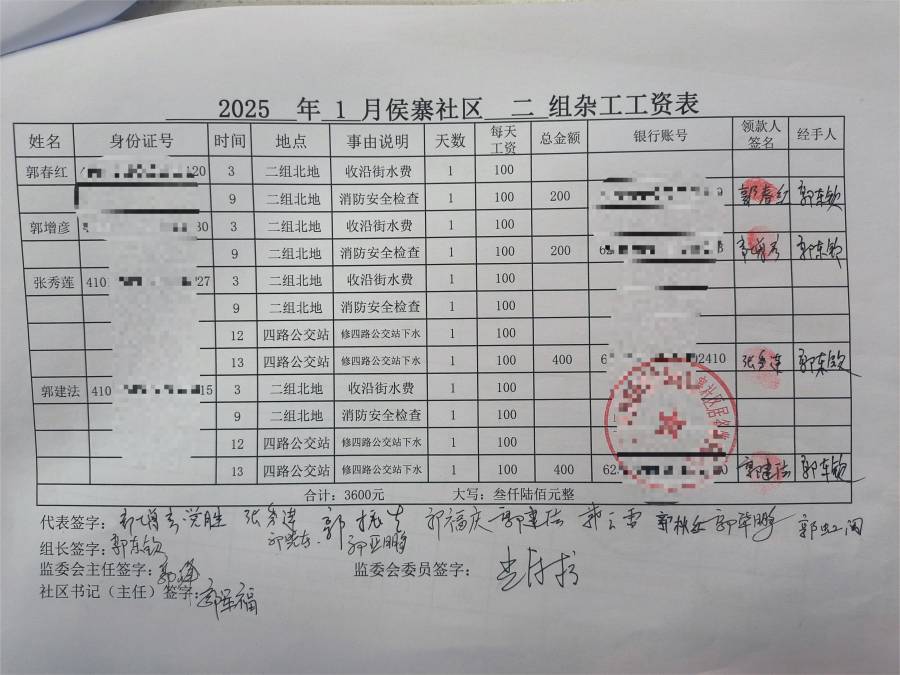 2025 年 1 月侯寨社区 二 组杂工工资表
姓名 身份证号 时间 地点 事由说明 天数 每天工资 总金额 银行账号 领款人签名 经手人
郭春红 120 3 二组北地 收沿街水费 1 100
9 二组北地 消防安全检查 1 100 200 郭春红 郭东钦
郭增彦 80 3 二组北地 收沿街水费 1 100
9 二组北地 消防安全检查 1 100 200 62 郭东钦
张秀莲 410 27 3 二组北地 收沿街水费 1 100
9 二组北地 消防安全检查 1 100
12 四路公交站 修四路公交站下水 1 100
13 四路公交站 修四路公交站下水 1 100 400 6 02410 张秀莲 郭东钦
郭建法 410 15 3 二组北地 收沿街水费 1 100
9 二组北地 消防安全检查 1 100
12 四路公交站 修四路公交站下水 1 100
13 四路公交站 修四路公交站下水 1 100 400 62 0 郭建法 郭东钦
合计：3600元 大写：叁仟陆佰元整
代表签字： 郭福庆 郭建法 郭秋
组长签字：郭东钦
监委会主任签字： 监委会委员签字：
社区书记（主任）签字：郭军福